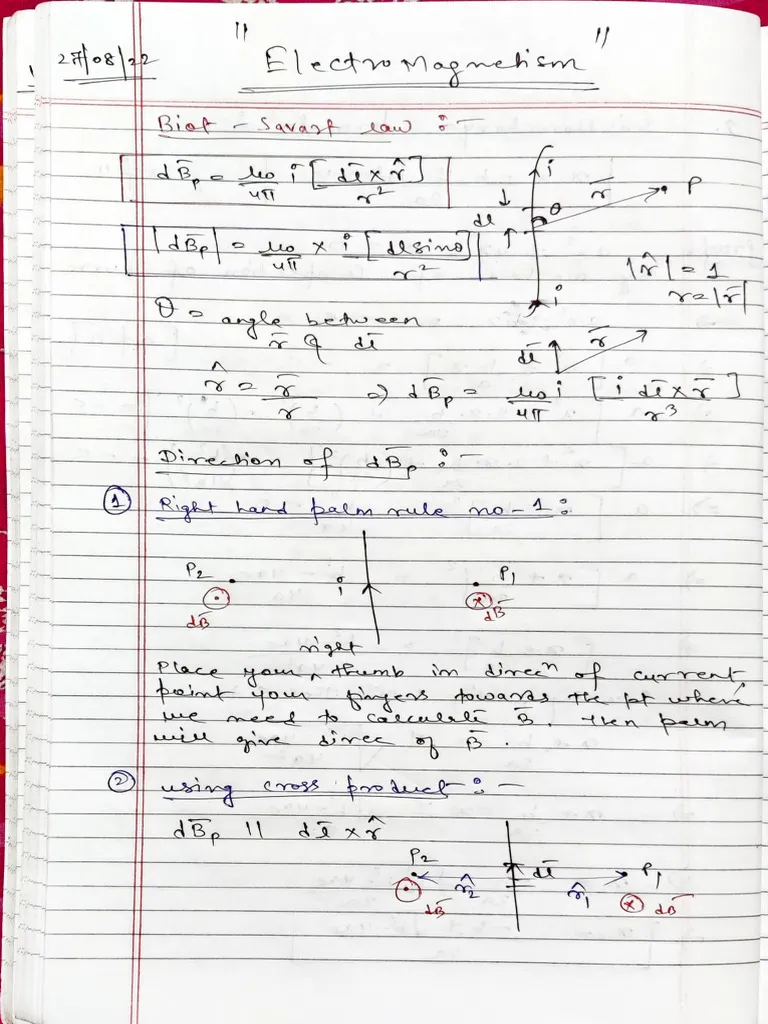 27/08/22
" ElectroMagnetism "
Biot - Savart law :-
dB̅ₚ = μ₀/4π i [dl̅ × r̂]/r²
|dB̅ₚ| = μ₀/4π × i [dl sinθ]/r²
i
r̅
P
dl
θ
i
|r̂| = 1
r = |r̅|
θ = angle between
r̅ & dl̅
dl̅
r̅
r̂ = r̅/r ⇒ dB̅ₚ = μ₀ i/4π [i dl̅ × r̅]/r³
Direction of dB̅ₚ :-
① Right hand palm rule no-1:
P₂
i
P₁
dB̅
dB̅
right
Place your ^ thumb in direcⁿ of current,
point your fingers towards the pt where
we need to calculate B̅. Then palm
will give direc of B̅.
② using cross product :-
dB̅ₚ || dl̅ × r̂
P₂
dl̅
P₁
r̂₂
r̂₁
dB̅
dB̅